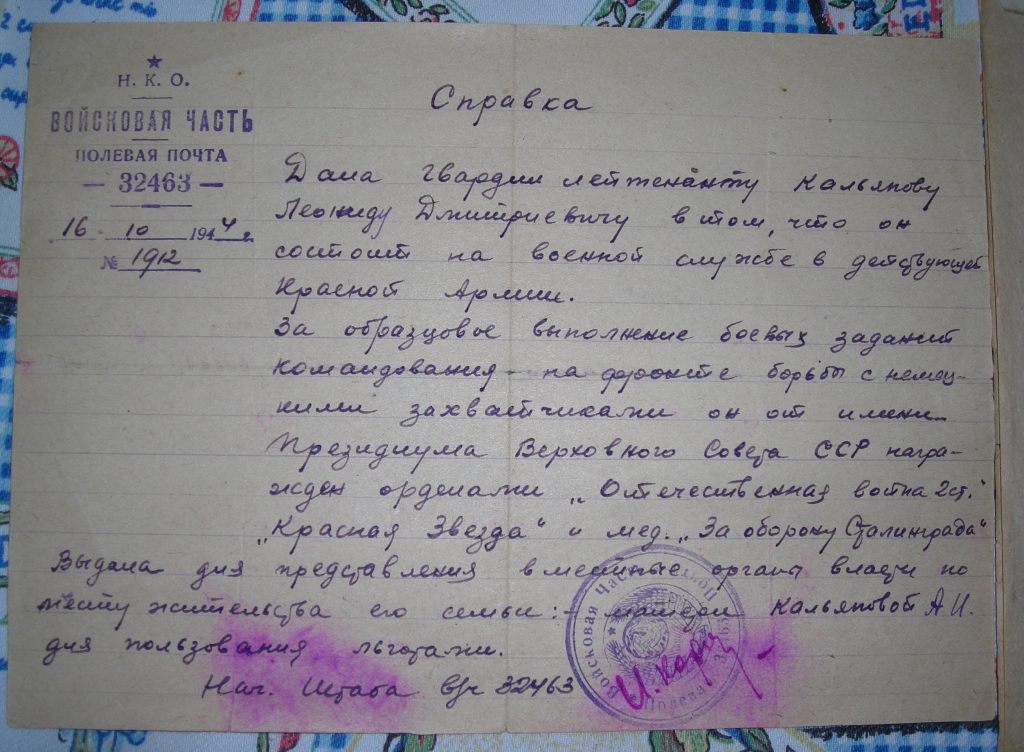 Н. К. О.
ВОЙСКОВАЯ ЧАСТЬ
ПОЛЕВАЯ ПОЧТА
— 32463 —
16 10 1944 г.
№ 1912
Справка
Дана гвардии лейтенанту Кальянову
Леониду Дмитриевичу в том, что он
состоит на военной службе в действующей
Красной Армии.
За образцовое выполнение боевых заданий
командования на фронте борьбы с немец-
кими захватчиками он от имени
Президиума Верховного Совета ССР награ-
жден орденами „Отечественная война 2 ст."
„Красная Звезда" и мед. „За оборону Сталинграда"
Выдана для представления в местные органы власти по
месту жительства его семьи: - матери Кальяновой А И.
для пользования льготами.
Нач. Штаба в/ч 32463
Войсковая Часть
Полевая